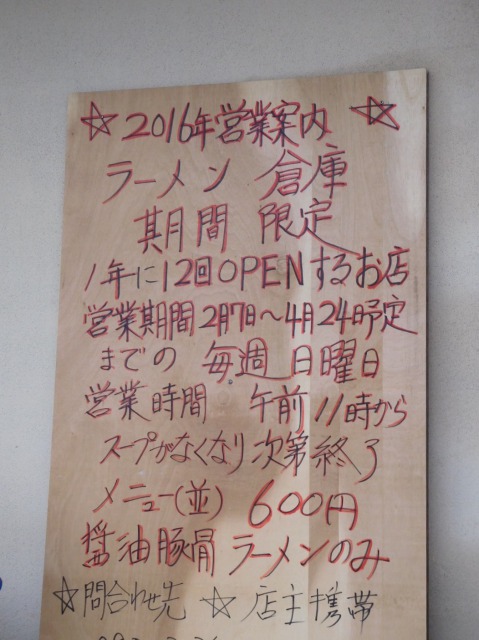 ☆2016年営業案内☆
ラーメン 倉庫
期間 限定
1年に12回OPENするお店
営業期間2月7日〜4月24日予定
までの 毎週 日曜日
営業時間 午前11時から
スープがなくなり次第終了
メニュー(並) 600円
醤油豚骨 ラーメンのみ
☆問合わせ先 ☆店主携帯